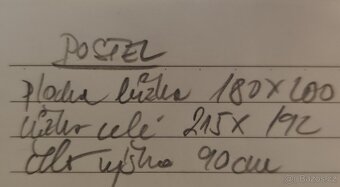 POSTEL
plocha lůžka 180x200
lůžko celé 215x192
celk výška 90cm